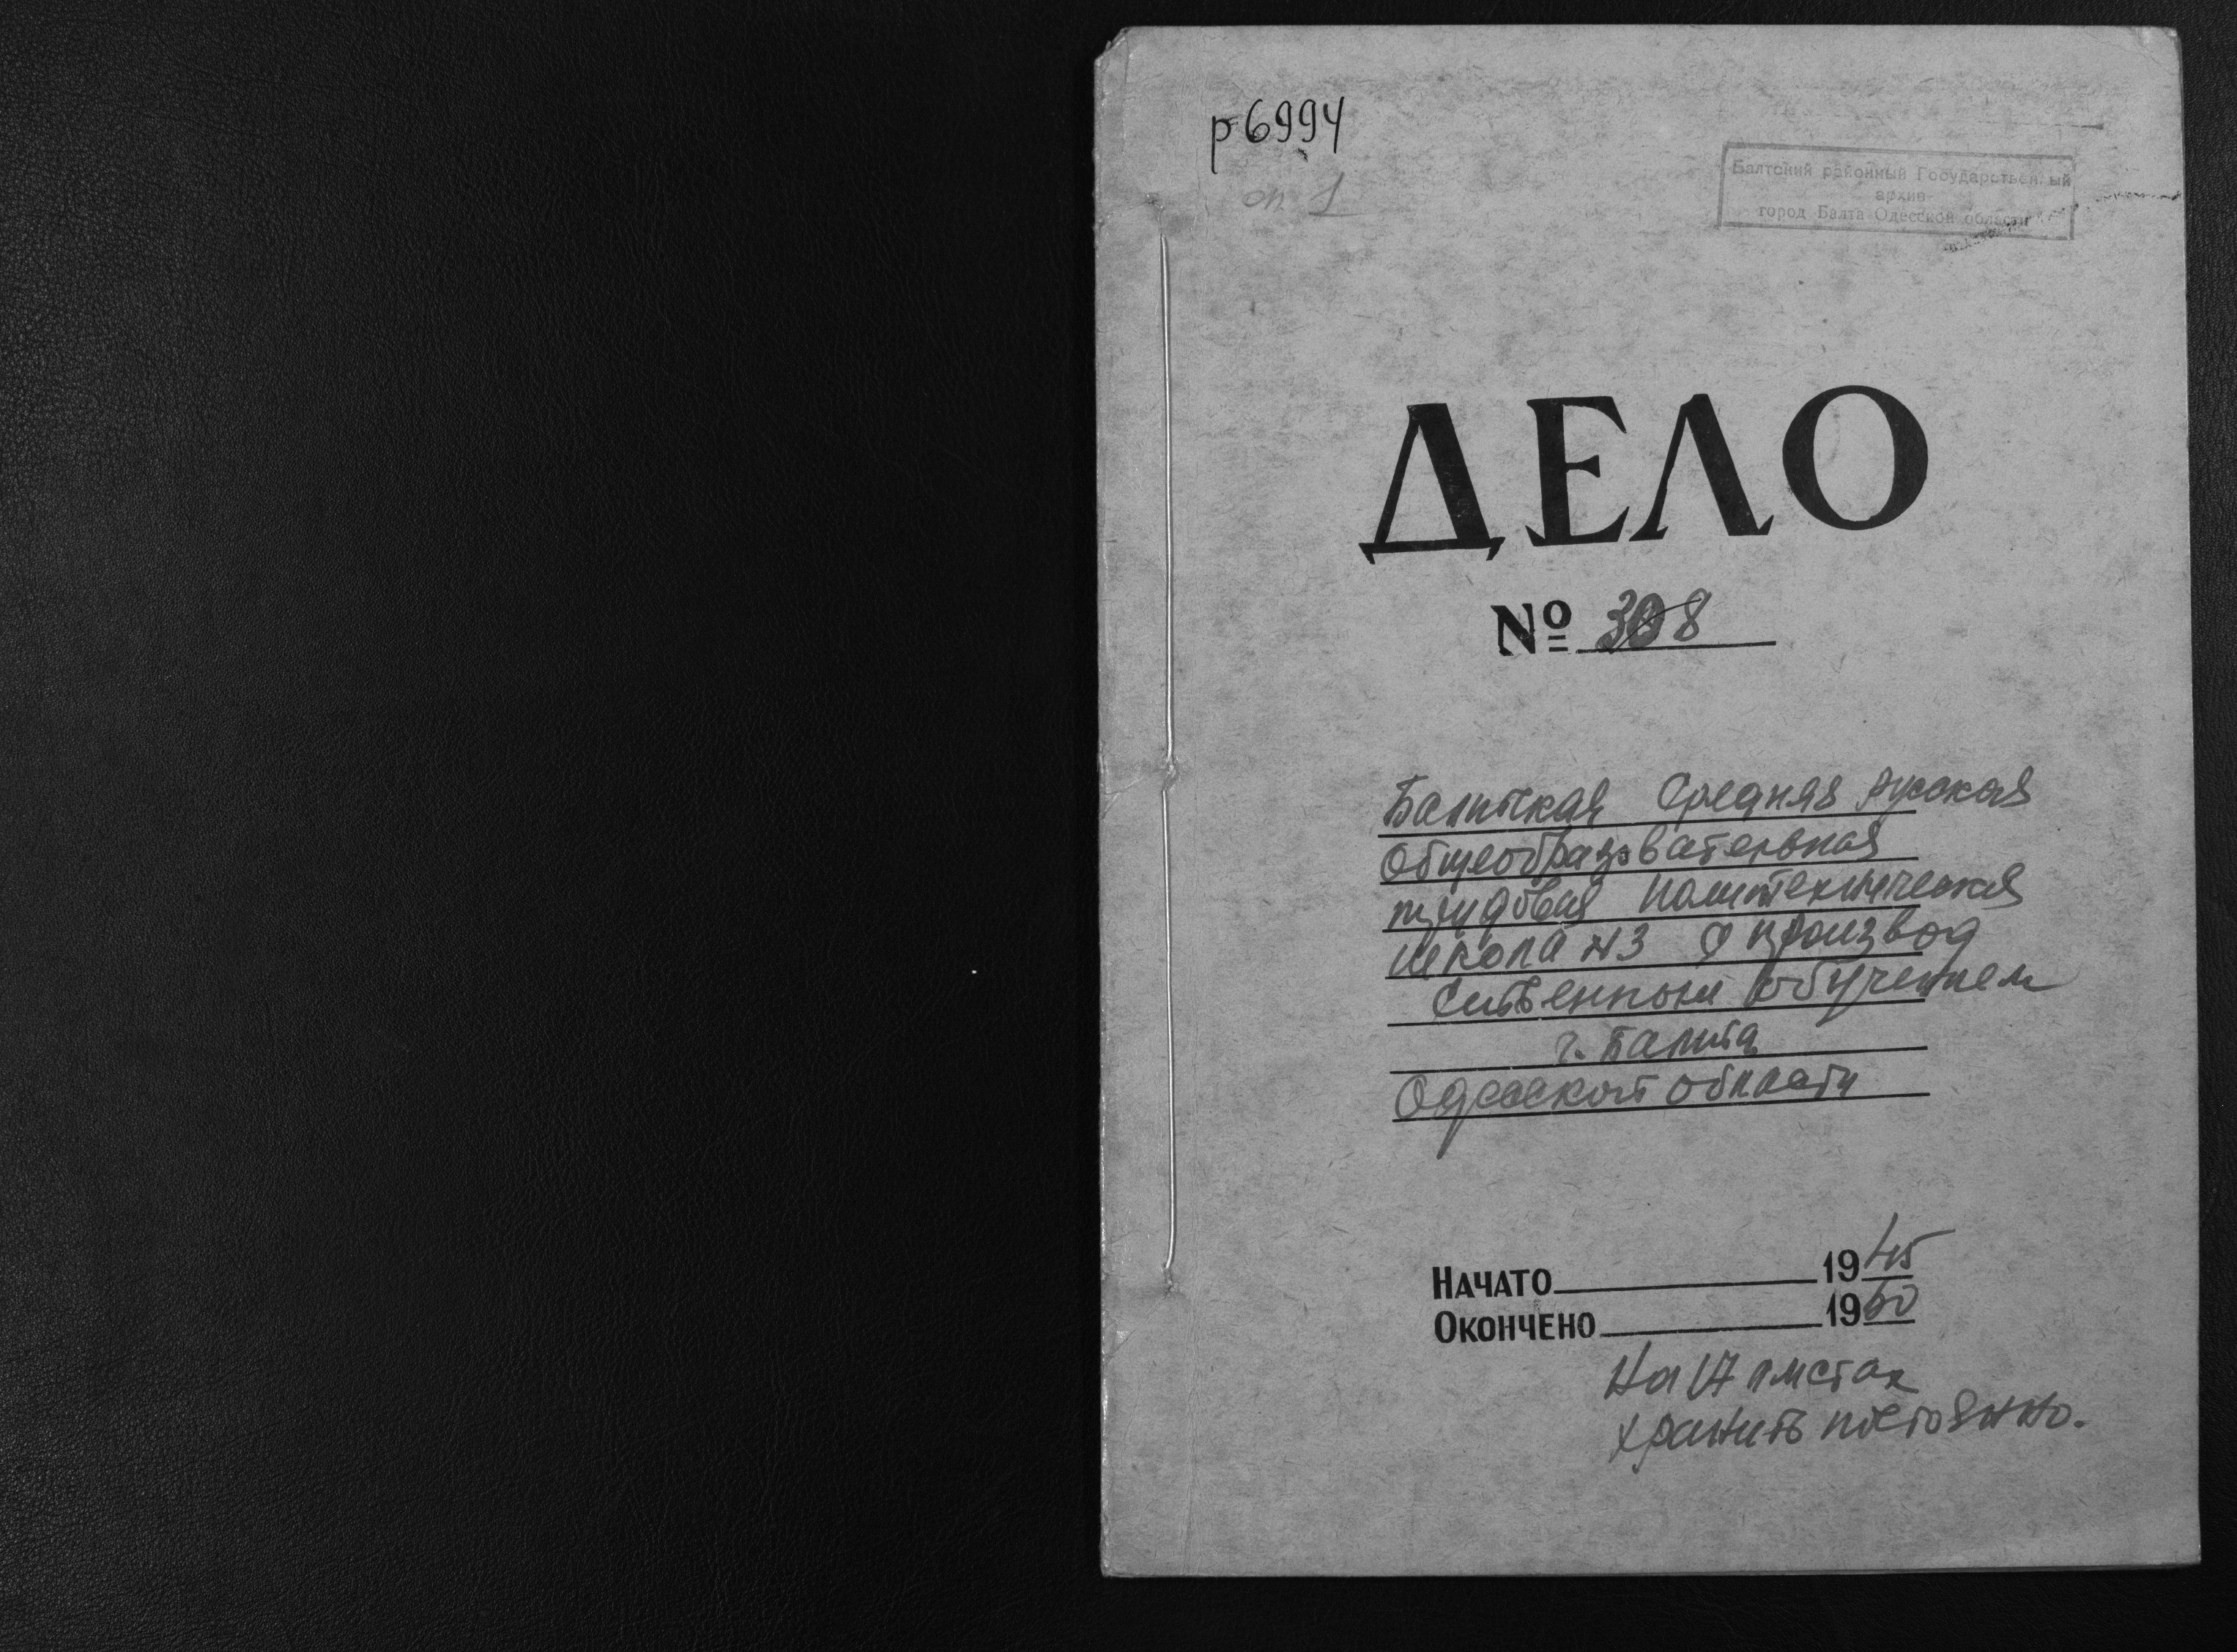 р6994
оп 1
Балтский районный Государственный
архив
город Балта Одесской области
ДЕЛО
№ 308
Балтская Средняя русская
Общеобразовательная
трудовая политехническая
школа №3 с производ
ственным обучением
г. Балта
Одесской области
НАЧАТО 1945
ОКОНЧЕНО 1960
На 17 листах
хранить постоянно.